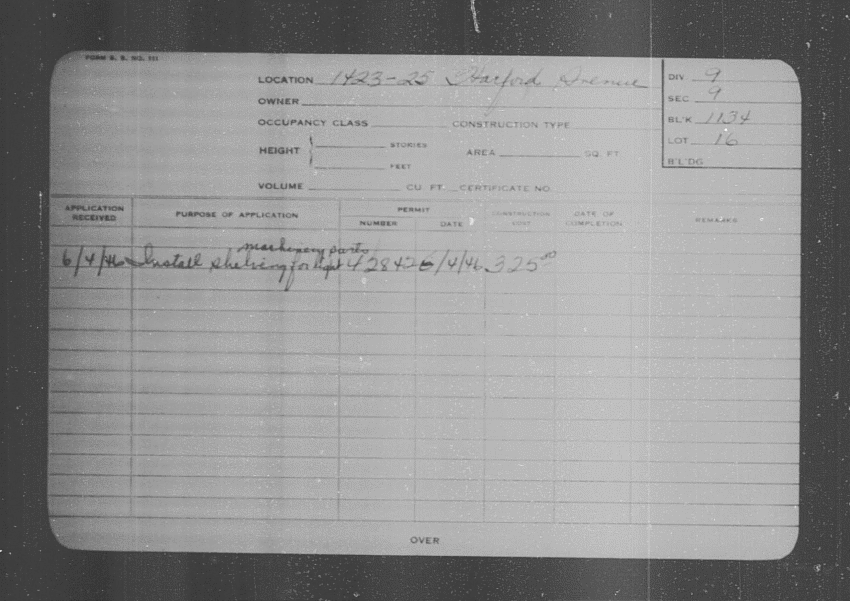 FORM B. B. NO. 311
LOCATION 1423-25 Harford Avenue
DIV 9
OWNER
SEC 9
OCCUPANCY CLASS CONSTRUCTION TYPE
BL'K 1134
HEIGHT STORIES AREA SQ. FT.
LOT 16
FEET
B'L'DG
VOLUME CU. FT. CERTIFICATE NO.
APPLICATION RECEIVED PURPOSE OF APPLICATION PERMIT NUMBER DATE CONSTRUCTION COST DATE OF COMPLETION REMARKS
machinery parts
6/4/46 Install shelving for light 42842 6/4/46 325.00
OVER